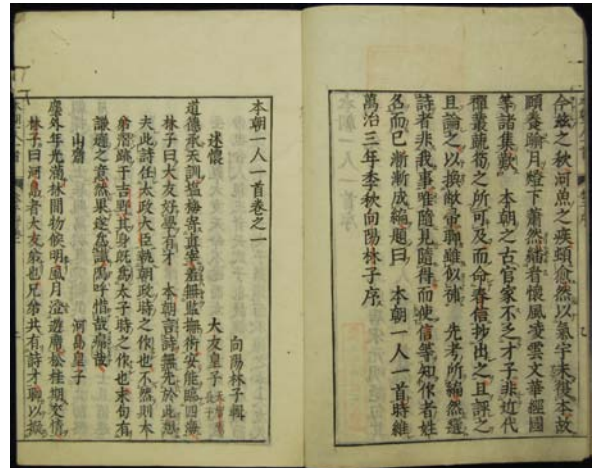 今茲之秋河魚之疾頗愈然以氣宇未復本故
頤養踰月燈下蕭然繙者懷風凌雲文華經國
等諸集歎 本朝之古官家不乏才子非近代
禪叢蔬筍之所可及而命春信抄出之且評之
且論之以換欹帝聊雖似補 先考所編然選
詩者非我事唯隨見隨得而使信等知作者姓
名而已漸漸成編題曰 本朝一人一首時維
萬治三年季秋向陽林子序
本朝一人一首卷之一
向陽林子輯
述懷 大友皇子
道德承天訓塩梅寄真宰羞無監撫術安能臨四海
林子曰大友好學有才 本朝言詩無先於此想
夫此詩任太政大臣執朝政時之作也不然則大
弟潛跳于吉野其身既為太子時之作也末句有
謙遜之意然果逐危識鳴呼惜哉痛哉
山齋 河島皇子
塵外年光滿林間物候明風月澄遊席松桂期交情
林子曰河島者大友弟也兄弟共有詩才聊以擬